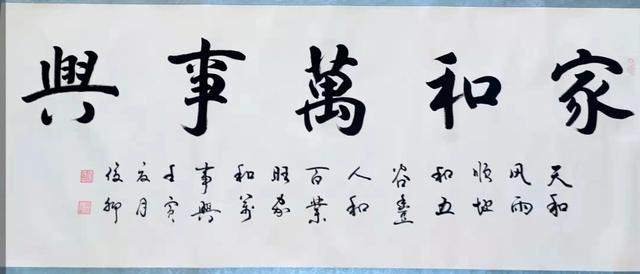 家和萬事興
天和
風雨
順地
和五
谷豐
人和
百業
旺家
和萬
事興
壬寅
夏月
俊卿